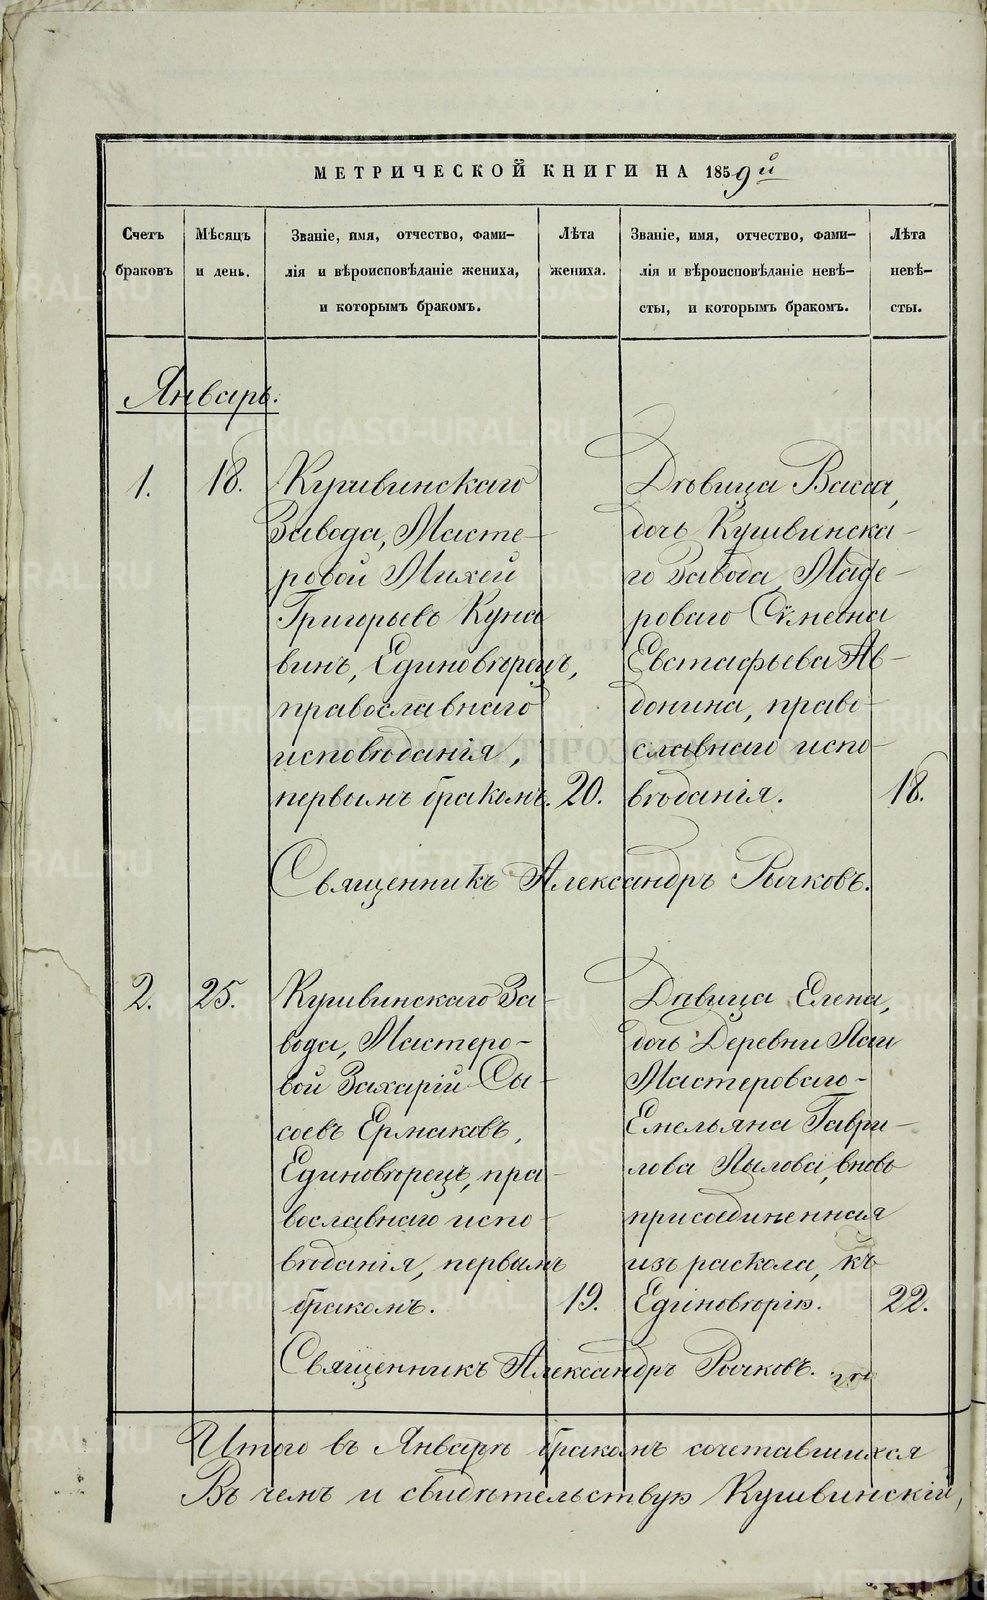 МЕТРИЧЕСКОЙ КНИГИ НА 1859й
Счетъ браковъ
Мѣсяцъ и день.
Званіе, имя, отчество, фами-
лія и вѣроисповѣданіе жениха,
и которымъ бракомъ.
Лѣта
жениха.
Званіе, имя, отчество, фами-
лія и вѣроисповѣданіе невѣ-
сты, и которымъ бракомъ.
Лѣта
невѣ-
сты.
Январь.
1.
18.
Кушвинскаго
Завода, Масте-
ровой Михей
Григорьевъ Куна
винъ, Единовѣрецъ,
православнаго
исповѣданія,
первымъ бракомъ.
20.
Дѣвица Васса,
дочь Кушвинска-
го Завода Масте-
роваго Сѵмеона
Евстафьева Ав-
донина, право-
славнаго испо-
вѣданія.
18.
Священникъ Александръ Рычковъ.
2.
25.
Кушвинскаго За-
вода, Мастеро-
вой Захарій Сы-
соевъ Ермаковъ,
Единовѣрецъ, пра-
вославнаго испо-
вѣданія, первымъ
бракомъ.
19.
Дѣвица Елена,
дочь Деревни Лаи
Мастероваго-
Емельяна Гаври-
лова Лылова, вновь
присоединенная
изъ раскола, къ
Единовѣрію.
22.
Священникъ Александръ Рычковъ.
Итого въ Январѣ бракомъ сочетавшихся
Въ чемъ и свидѣтельствую Кушвинскій,
METRIKI.GASO-URAL.RU